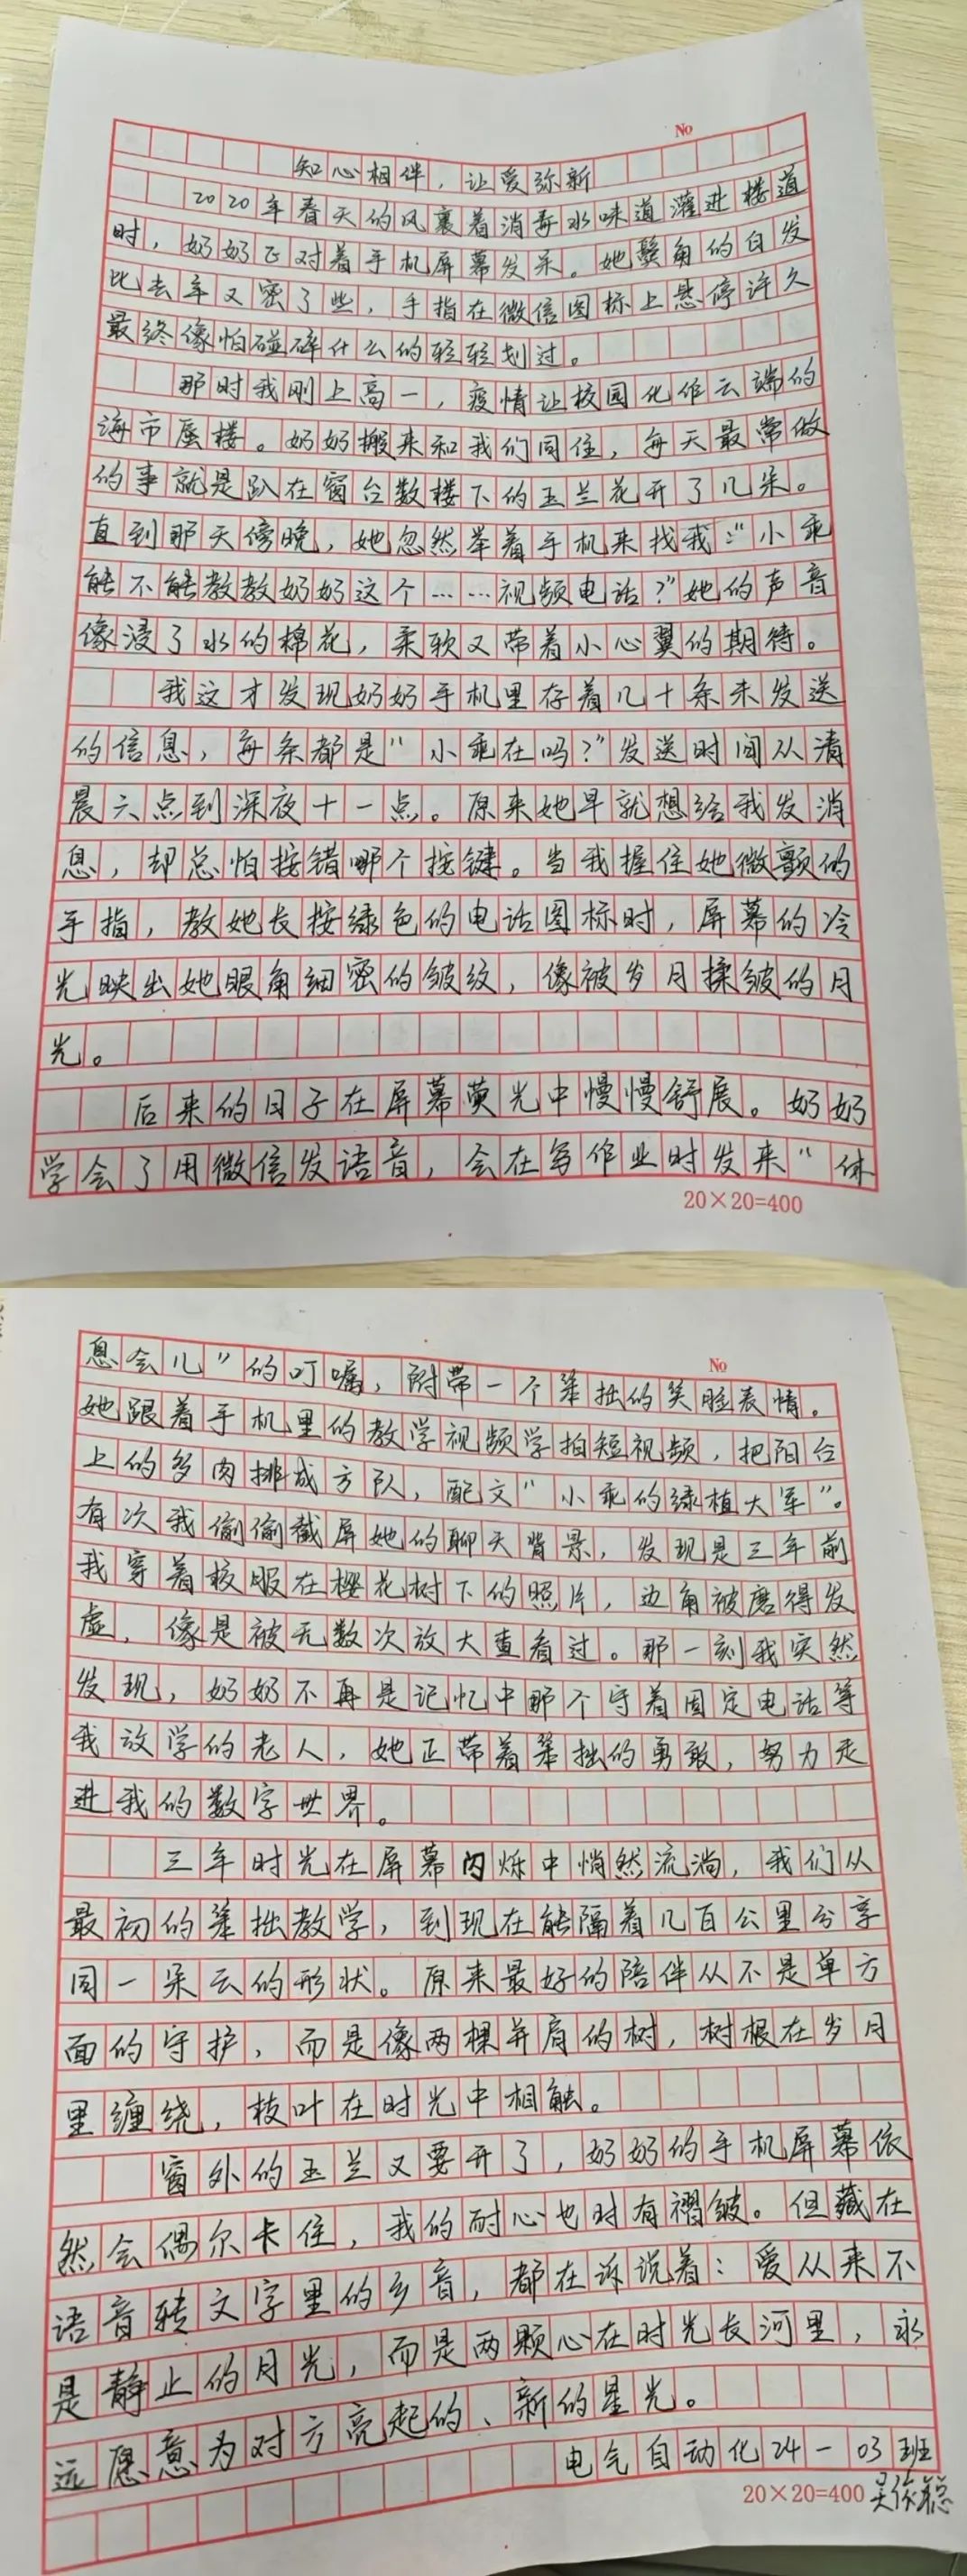 No
知心相伴，让爱弥新
2020年春天的风裹着消毒水味道灌进楼道
时，奶奶正对着手机屏幕发呆。她鬓角的白发
比去年又密了些，手指在微信图标上悬停许久
最终像怕碰碎什么的轻轻划过。
那时我刚上高一，疫情让校园化作云端的
海市蜃楼。奶奶搬来和我们同住，每天最常做
的事就是趴在窗台数楼下的玉兰花开了几朵。
直到那天傍晚，她忽然举着手机来找我：“小乖
能不能教教奶奶这个……视频电话？”她的声音
像浸了水的棉花，柔软又带着小心翼的期待。
我这才发现奶奶手机里存着几十条未发送
的信息，每条都是“小乖在吗？”发送时间从清
晨六点到深夜十一点。原来她早就想给我发消
息，却总怕按错哪个按键。当我握住她微颤的
手指，教她长按绿色的电话图标时，屏幕的冷
光映出她眼角细密的皱纹，像被岁月揉皱的月
光。
后来的日子在屏幕荧光中慢慢舒展。奶奶
学会了用微信发语音，会在写作业时发来“休
20×20=400
No
息会儿”的叮嘱，附带一个笨拙的笑脸表情。
她跟着手机里的教学视频学拍短视频，把阳台
上的多肉排成方队，配文“小乖的绿植大军”。
有次我偷偷截屏她的聊天背景，发现是三年前
我穿着校服在樱花树下的照片，边角被磨得发
虚，像是被无数次放大查看过。那一刻我突然
发现，奶奶不再是记忆中那个守着固定电话等
我放学的老人，她正带着笨拙的勇敢，努力走
进我的数字世界。
三年时光在屏幕闪烁中悄然流淌，我们从
最初的笨拙教学，到现在能隔着几百公里分享
同一朵云的形状。原来最好的陪伴从不是单方
面的守护，而是像两棵并肩的树，树根在岁月
里缠绕，枝叶在时光中相触。
窗外的玉兰又要开了，奶奶的手机屏幕依
然会偶尔卡住，我的耐心也时有褶皱。但藏在
语音转文字里的乡音，都在诉说着：爱从来不
是静止的月光，而是两颗心在时光长河里，永
远愿意为对方亮起的、新的星光。
电气自动化24-03班
20×20=400 吴依聪